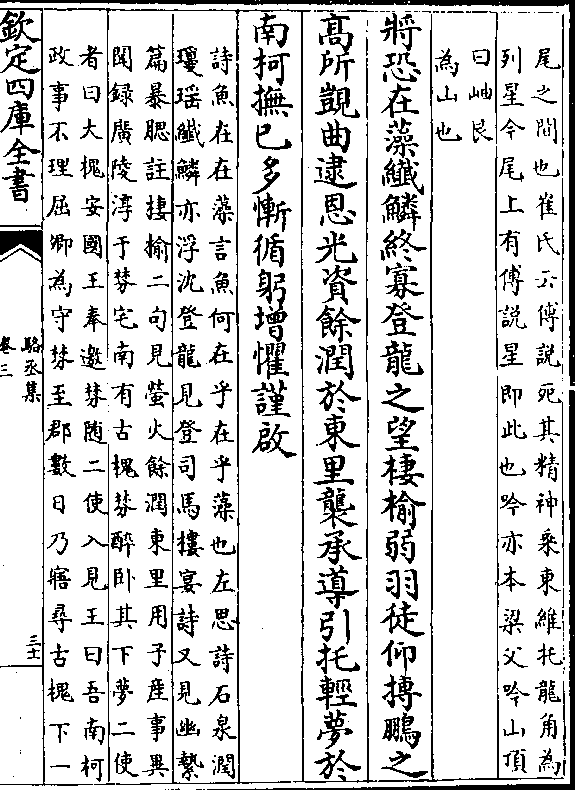 尾之間也崔氏云傅說死其精神乘東維托龍角為
列星今尾上有傅說星即此也吟亦本梁父吟山頂
曰岫艮
為山也
將恐在藻纎鱗終寡登龍之望棲榆弱羽徒仰摶鵬之
髙所覬曲逮恩光資餘潤於東里襲承導引托輕夢於
南柯撫已多慚循躬增懼謹啟
詩魚在在藻言魚何在乎在乎藻也左思詩石泉潤
瓊瑶纎鱗亦浮沈登龍見登司馬樓宴詩又見幽縶
篇暴腮註棲榆二句見螢火餘潤東里用子産事異
聞録廣陵淳于棼宅南有古槐棼醉卧其下夢二使
者曰大槐安國王奉邀棼随二使入見王曰吾南柯
政事不理屈卿為守棼至郡數日乃寤尋古槐下一
欽定四庫全書
駱丞集
卷三
三十